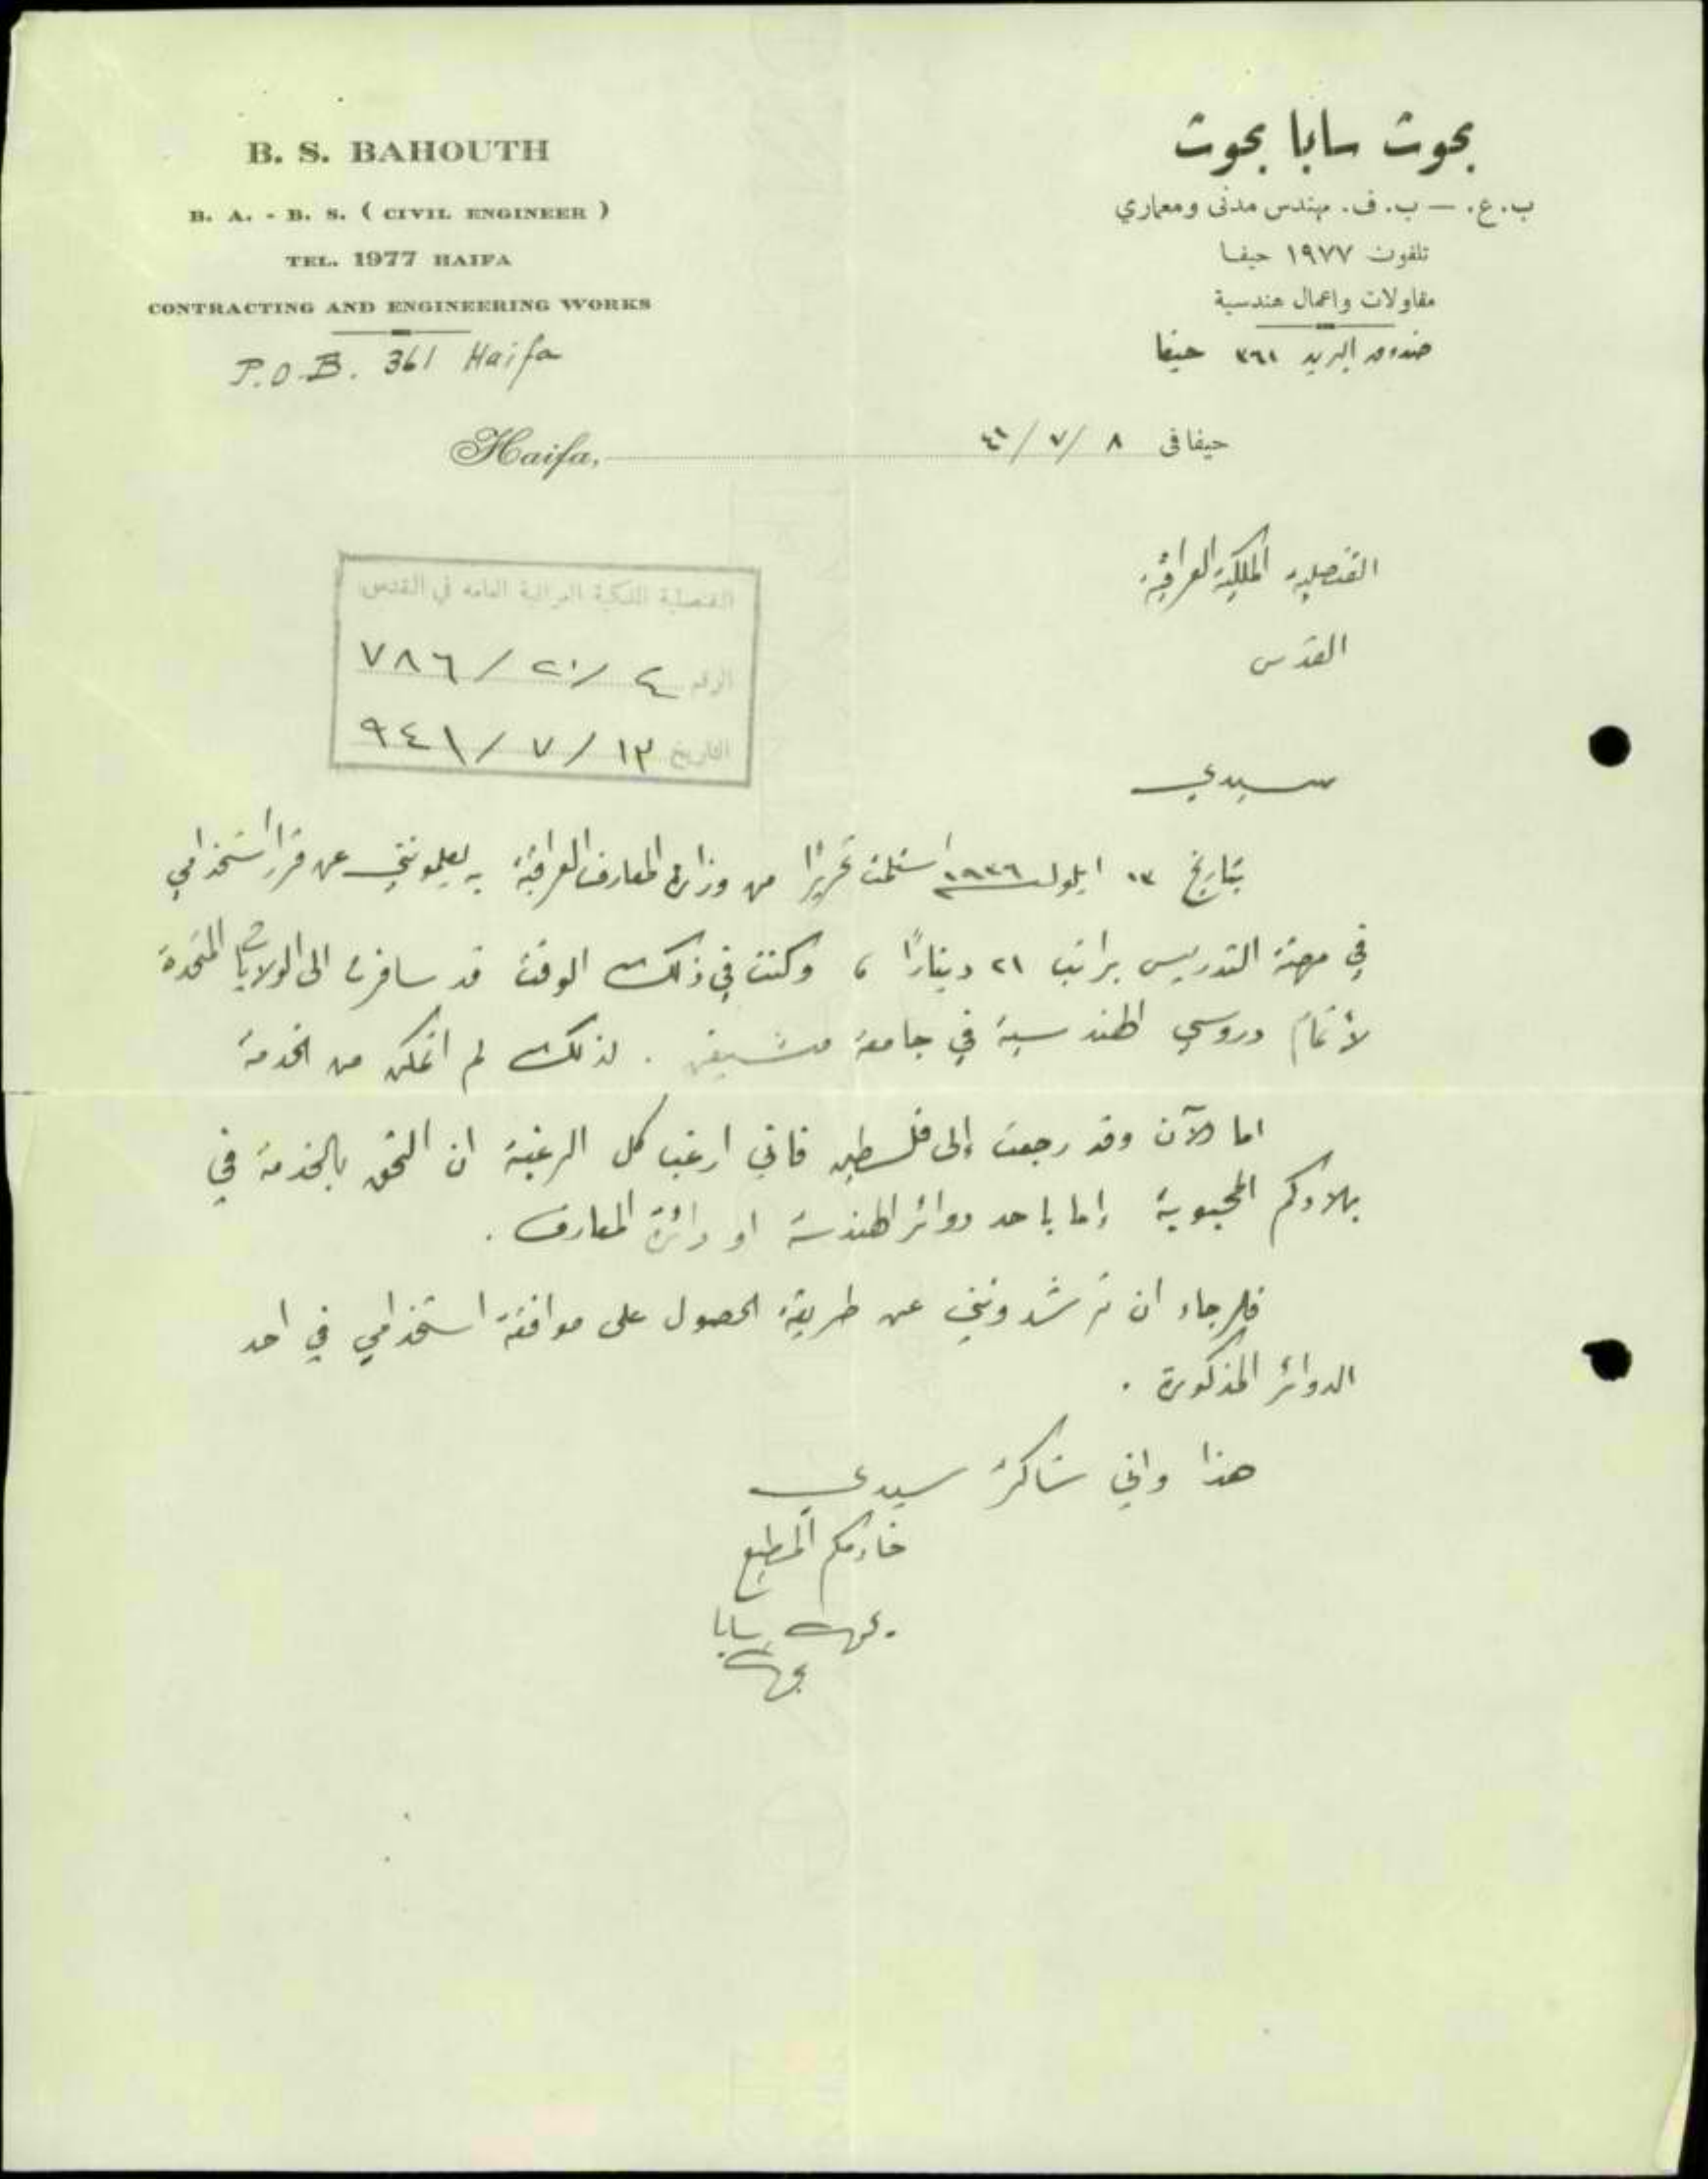 B. S. BAHOUTH
B. A. - B. S. ( CIVIL ENGINEER )
TEL. 1977 HAIFA
CONTRACTING AND ENGINEERING WORKS
P.O.B. 361 Haifa
بحوث سابا بحوث
ب. ع. — ب. ف. مهندس مدنى ومعماري
تلفون ١٩٧٧ حيفا
مقاولات واعمال هندسية
صندوق البريد ٣٦١ حيفا
Haifa, حيفا فى ٨ /٧/ ٤١
القنصلية الملكية العراقية
القدس
القنصلية الملكية العراقية العامه في القدس
الرقم ٤ /٢٠/ ٧٨٦
التاريخ ١٣ /٧/ ٩٤١
سيدي
بتاريخ ١٣ ايلول ١٩٣٦ استلمت تحريرًا من وزارة المعارف العراقية به يعلمونني عن قرار استخدامي
في مهنة التدريس براتب ٢١ دينارًا ، وكنت في ذلك الوقت قد سافرت الى الولايات المتحدة
لأتمام دروسي الهندسية في جامعة مشيغن . لذلك لم اتمكن من الخدمة
اما الآن وقد رجعت إلى فلسطين فاني ارغب كل الرغبة ان التحق بالخدمة في
بلادكم المحبوبة إما باحد دوائر الهندسة او دائرة المعارف .
فالرجاء ان ترشدونني عن طريقة الحصول على موافقة استخدامي في احد
الدوائر المذكورة .
هذا واني شاكرٌ سيدي
خادمكم المطيع
بحوث سابا
بحوث